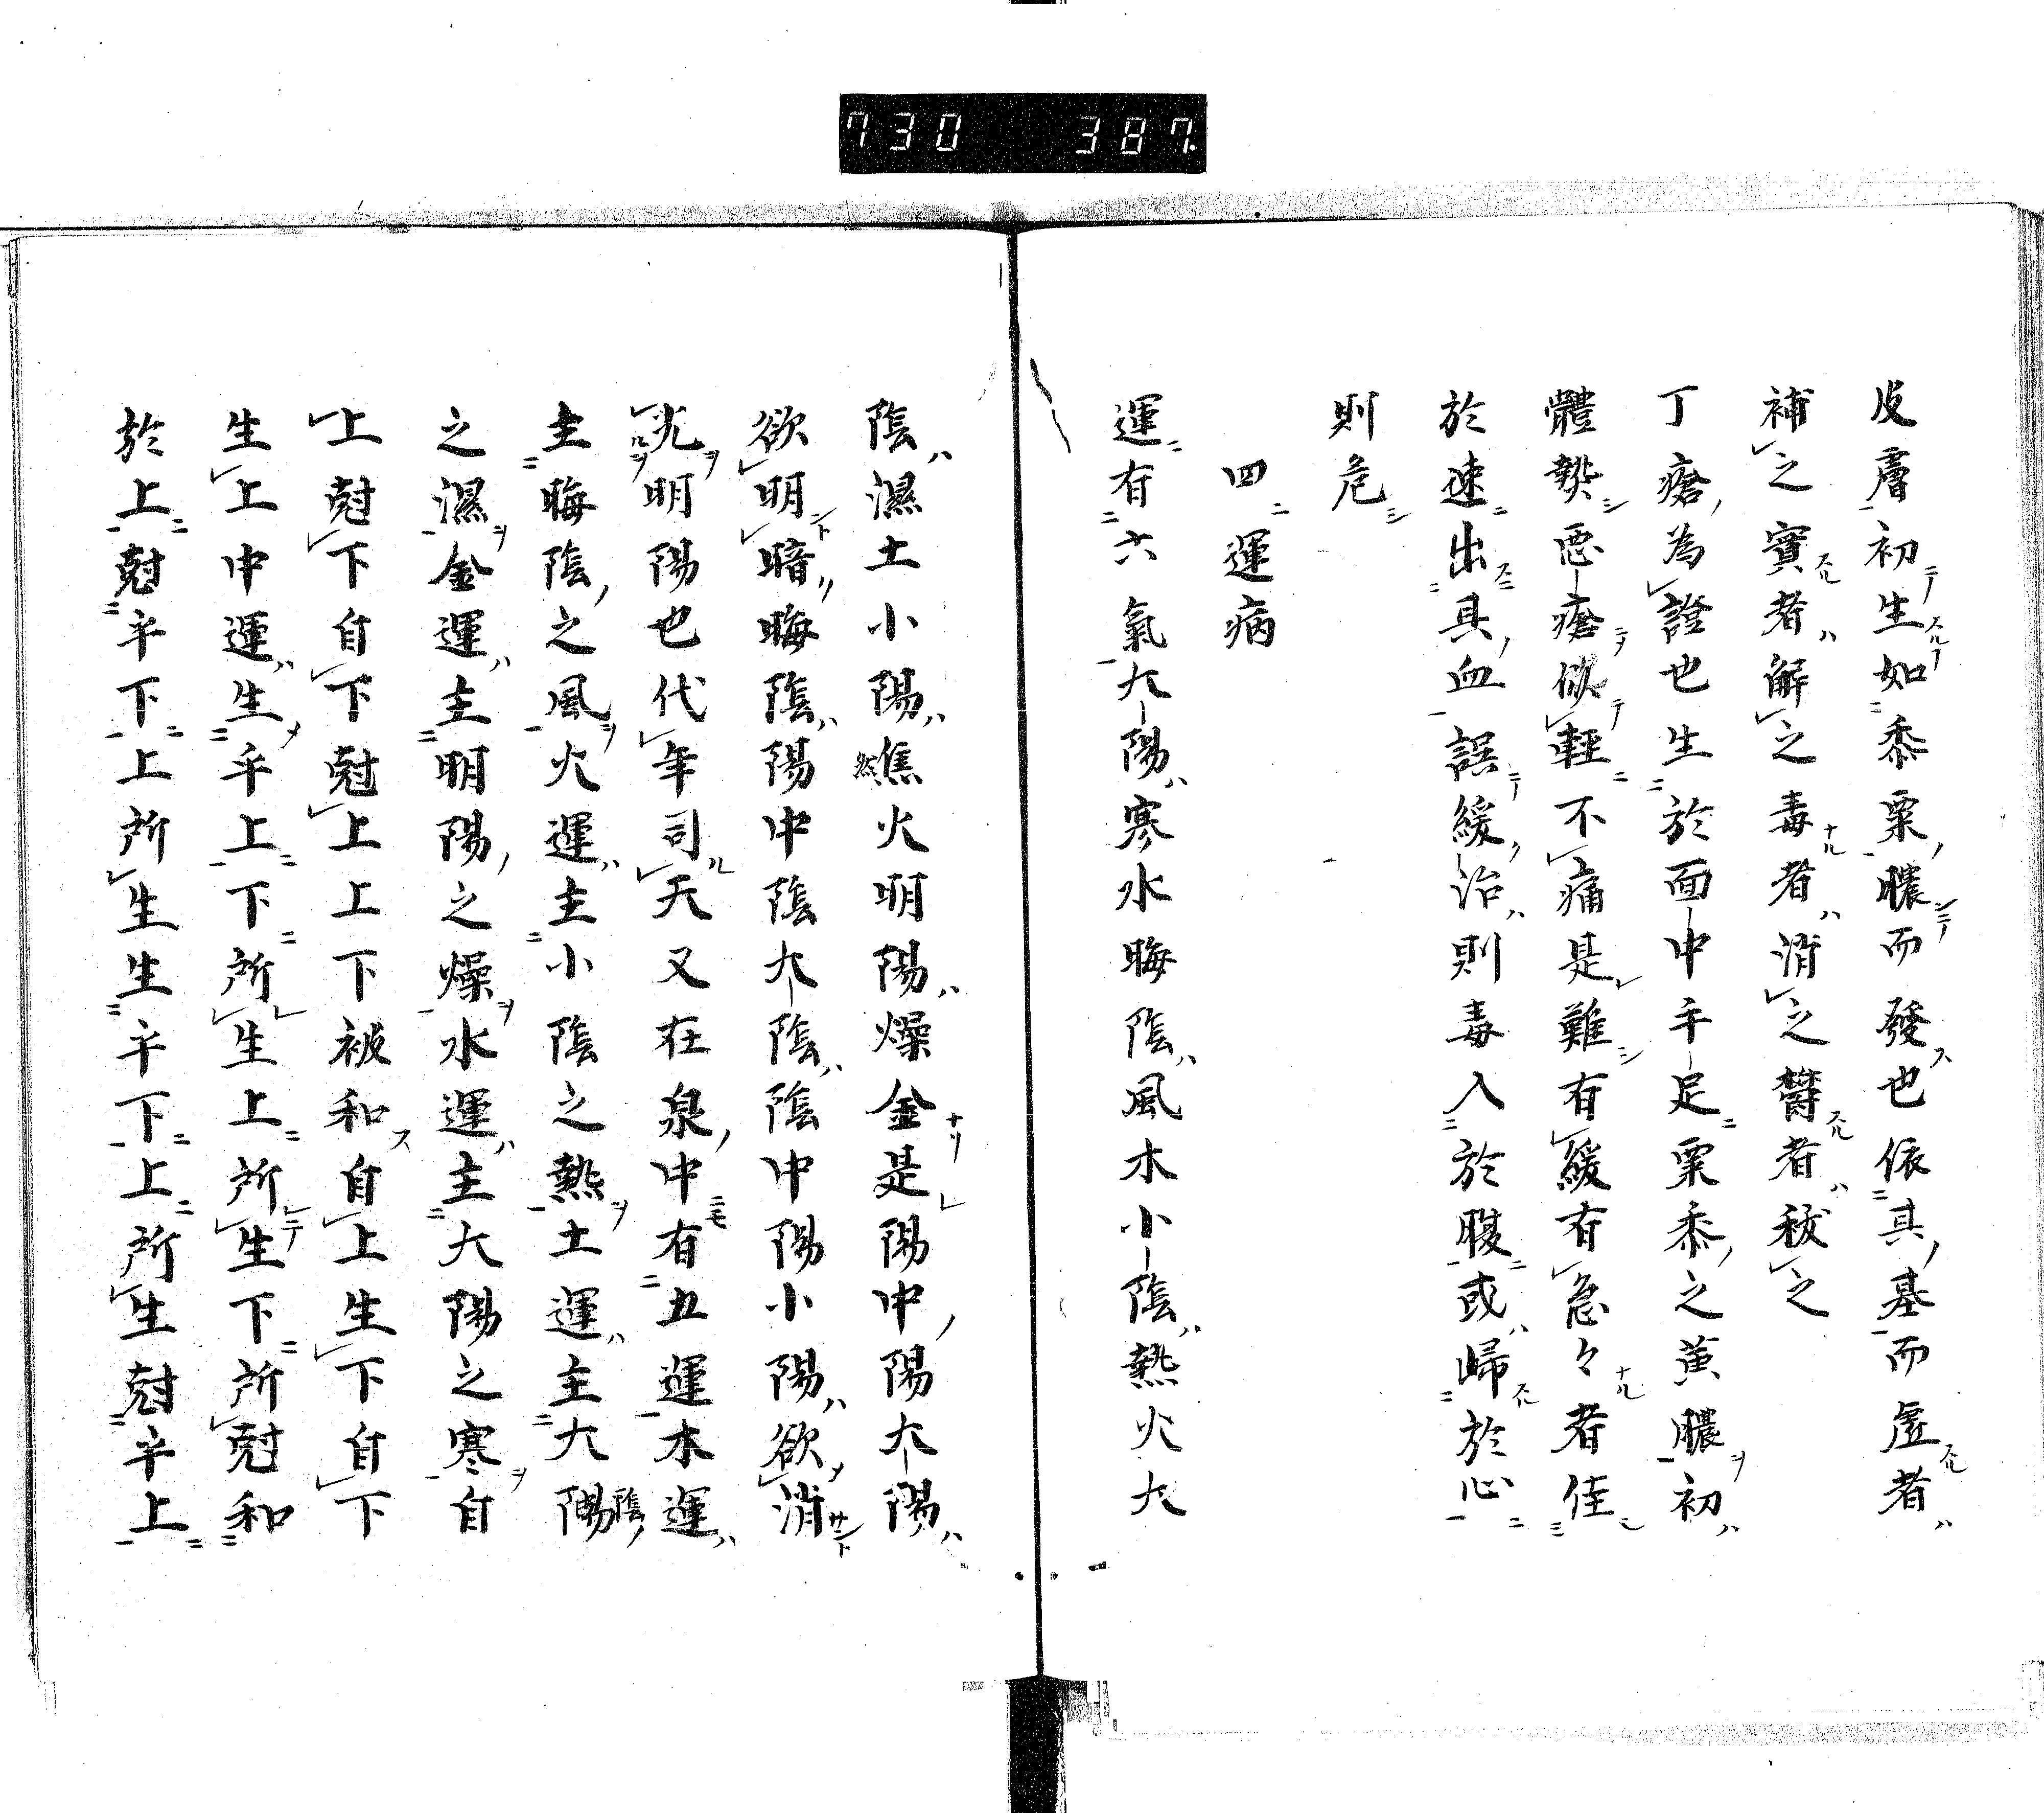 730 387.
皮膚初生如黍粟膿而發也依其基而虚者
補之實者解之毒者消之欝者秡之
丁瘡為證也生於面中手足粟黍之黄膿初
體勢悪瘡似輕不痛是難有緩有急々者佳
於速出其血誤緩治則毒入於腹或歸於心
則危
四運病
運有六氣大陽寒水晦陰風木小陰熱火大
陰濕土小陽焦火明陽燥金是陽中陽大陽
欲明暗晦陰陽中陰大陰陰中陽小陽欲消
光明陽也代年司天又在泉中有五運木運
主晦陰之風火運主小陰之熱土運主大陽陰
之濕金運主明陽之燥水運主大陽之寒自
上尅下自下尅上上下被和自上生下自下
生上中運生乎上下所生上所生下所尅和
於上尅乎下上所生生乎下上所生尅乎上